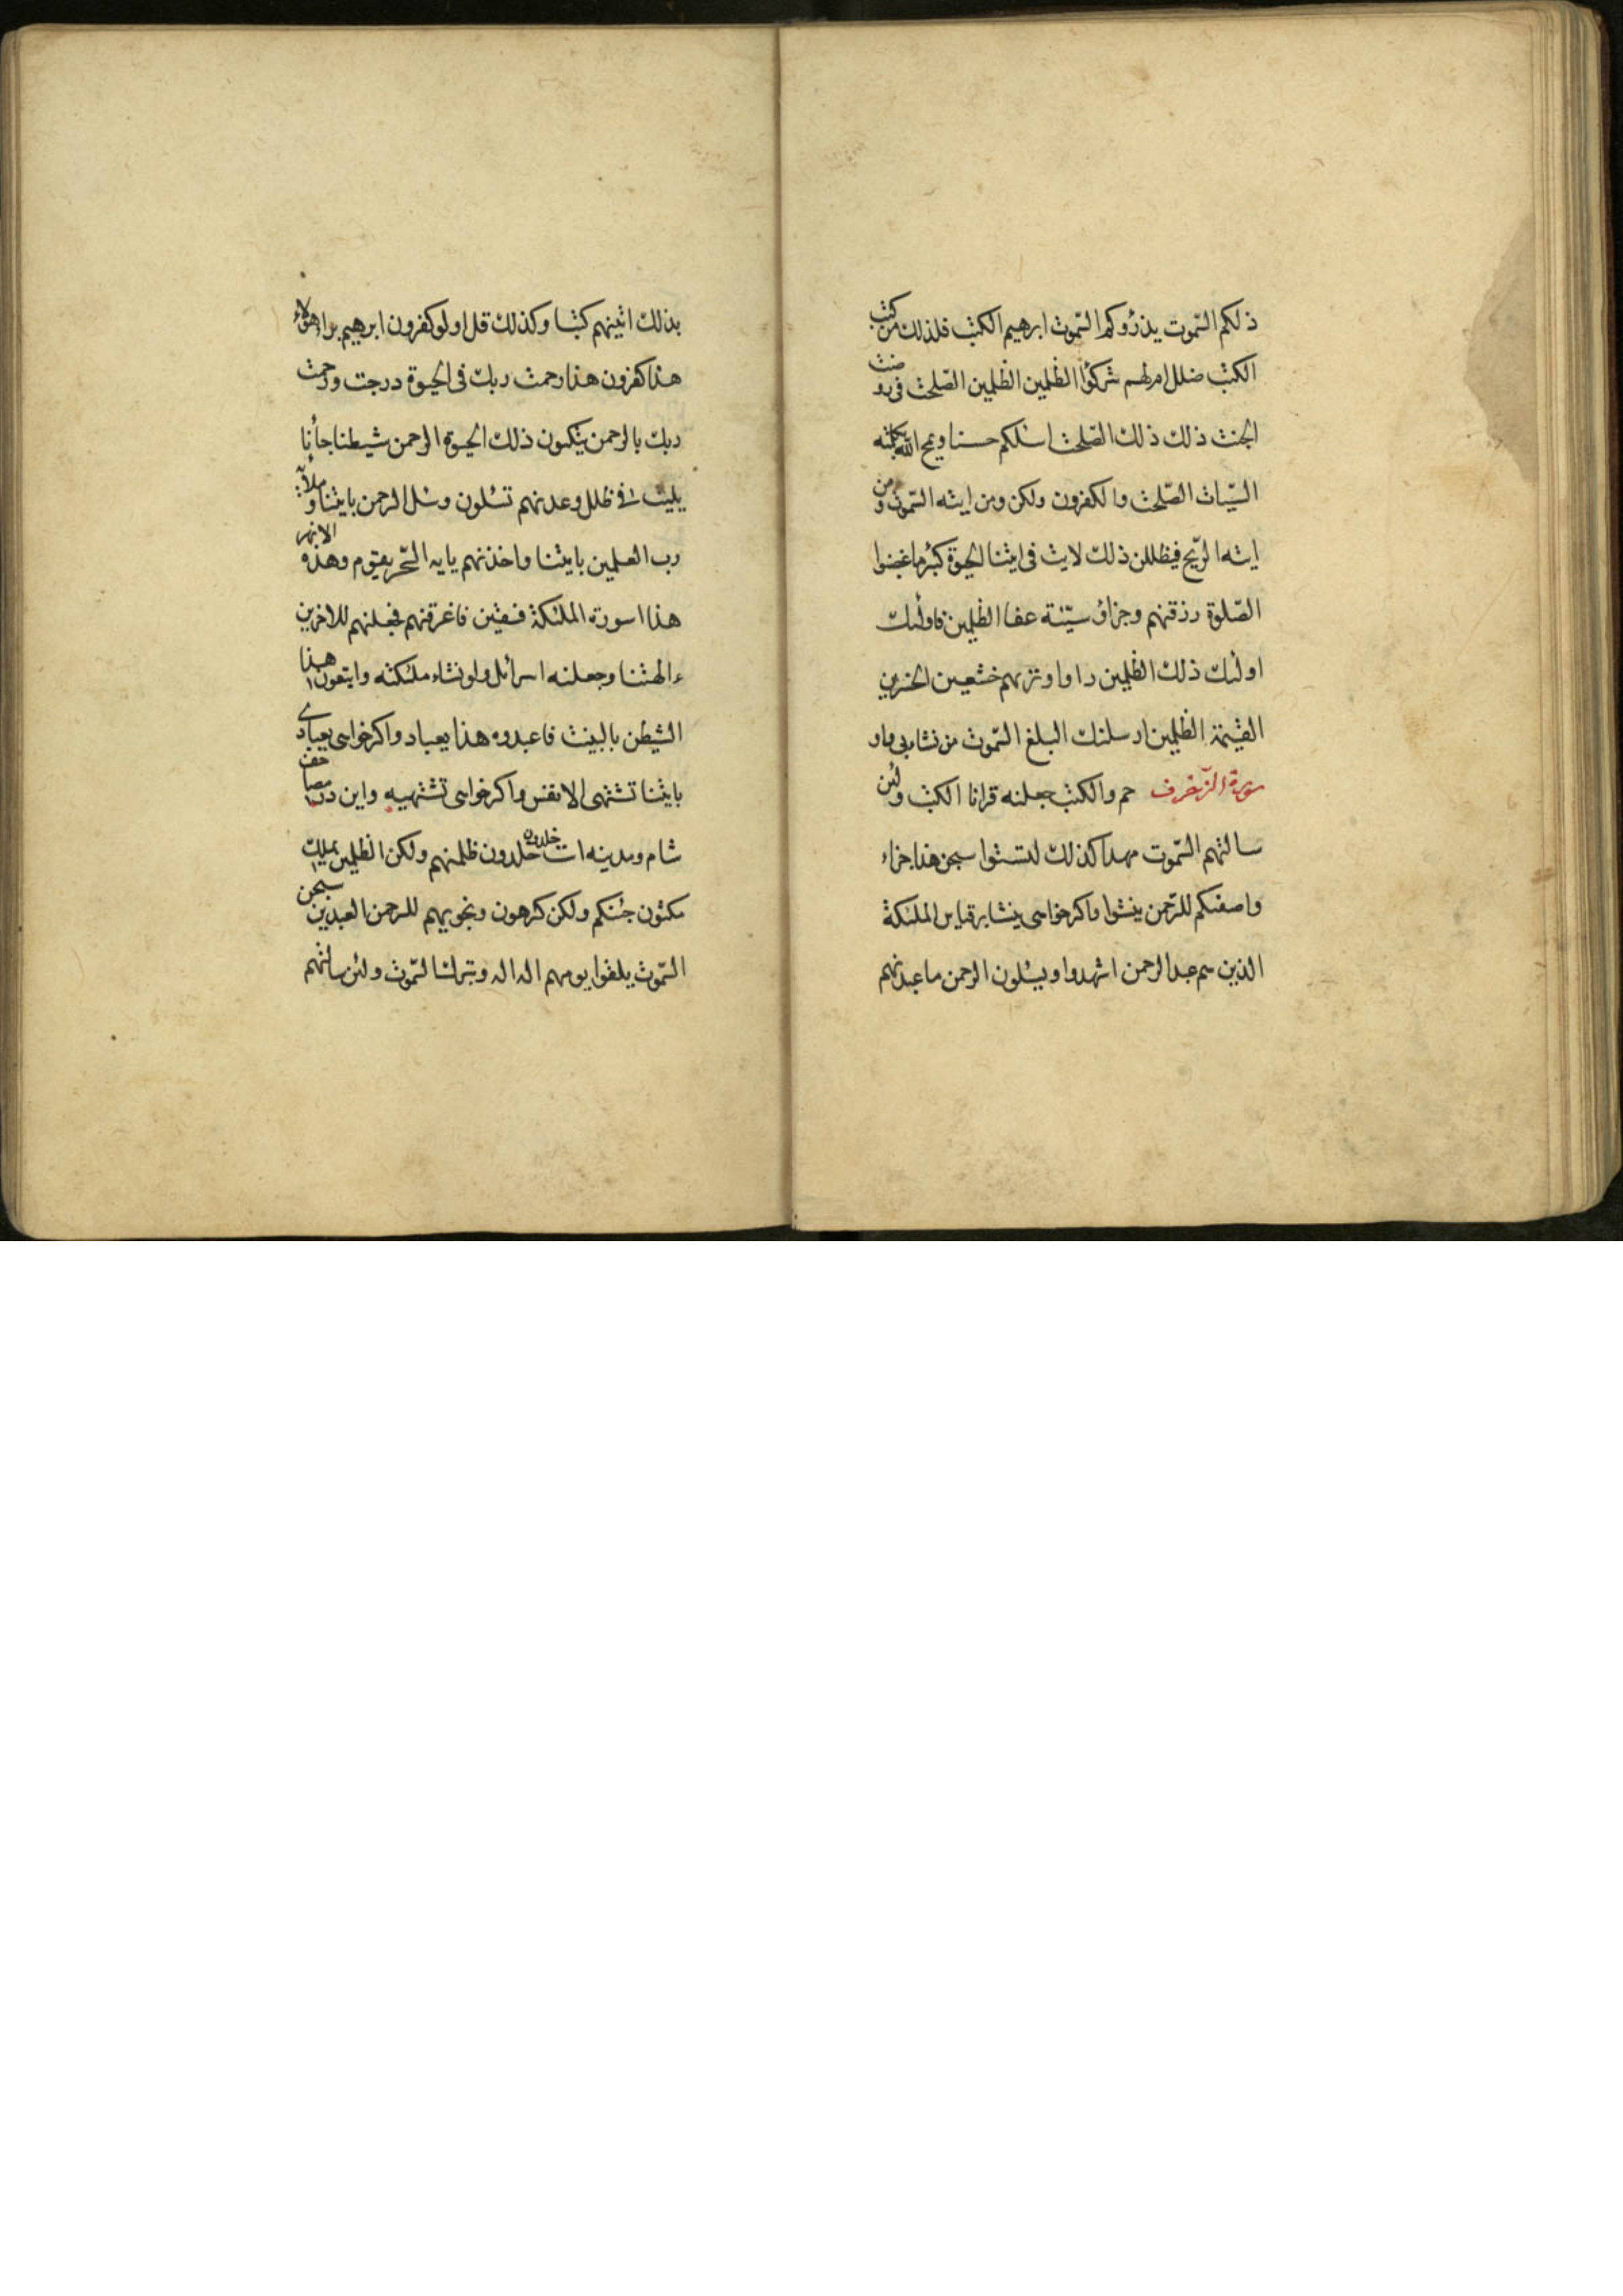 ذلكم السموت يذرؤكم السموت ابرهيم الكتب فلذلك من كتب
الكتب ضلل امر لهم شركؤا الظلمين الظلمين الصلحت فى روضت
الجنت ذلك ذلك الصلحت اسلكم حسنا ويمح الله بكلمته
السيات الصلحت والكفرون ولكن ومن ايته السموت ومن
ايته الريح فيظللن ذلك لايت فى ايتنا الحيوة كبئر ما غضبوا
الصلوة رزقنهم وجزاؤ سيئة عفا الظلمين فاولئك
اولئك ذلك الظلمين راوا وتريهم خشعين الخسرين
القيمة الظلمين ارسلنك البلغ السموت من نشاء
سورة الزخرف حم والكتب جعلنه قرانا الكتب ولئن
سالتهم السموت مهدا كذلك لتستوا سبحن هذا جزاء
واصفكم للرحمن ينشوا واكر خواهى ينشا الملئكة
الذين هم عبد الرحمن اشهدوا ويسئلون الرحمن ما عبدنهم
بذلك اتينهم كتبا وكذلك قل اولو كفرون ابرهيم براء هؤلاء
هذا كفرون هذا رحمت ربك فى الحيوة درجت ورحمت
ربك بالرحمن يتكون ذلك الحيوة الرحمن شيطنا جاأنا
يليت فى ظلل وعدنهم تسئلون وسئل الرحمن بايتنا وملأئه
رب العلمين بايتنا واخذنهم يايه السحر يقوم وهذه الانهر
هذا اسورة الملئكة فسقين فاغرقنهم فجعلنهم للاخرين
ءالهتنا وجعلنه اسرائل ولو نشاء ملئكته واتبعون هذا
الشيطن بالبينت فاعبدوه هذا يعباد واكر خواهى يعبادى
بايتنا تشتهى الانفس واكر خواهى تشتهيه واين در مصاحف
شام ومدينه است خلدون خلدون ظلمنهم ولكن الظلمين يملك
مكثون جئنكم ولكن كرهون ونجويهم للرحمن العبدين سبحن
السموت يلقوا يومهم اله اله وتبرك السموت ولئن سالتهم